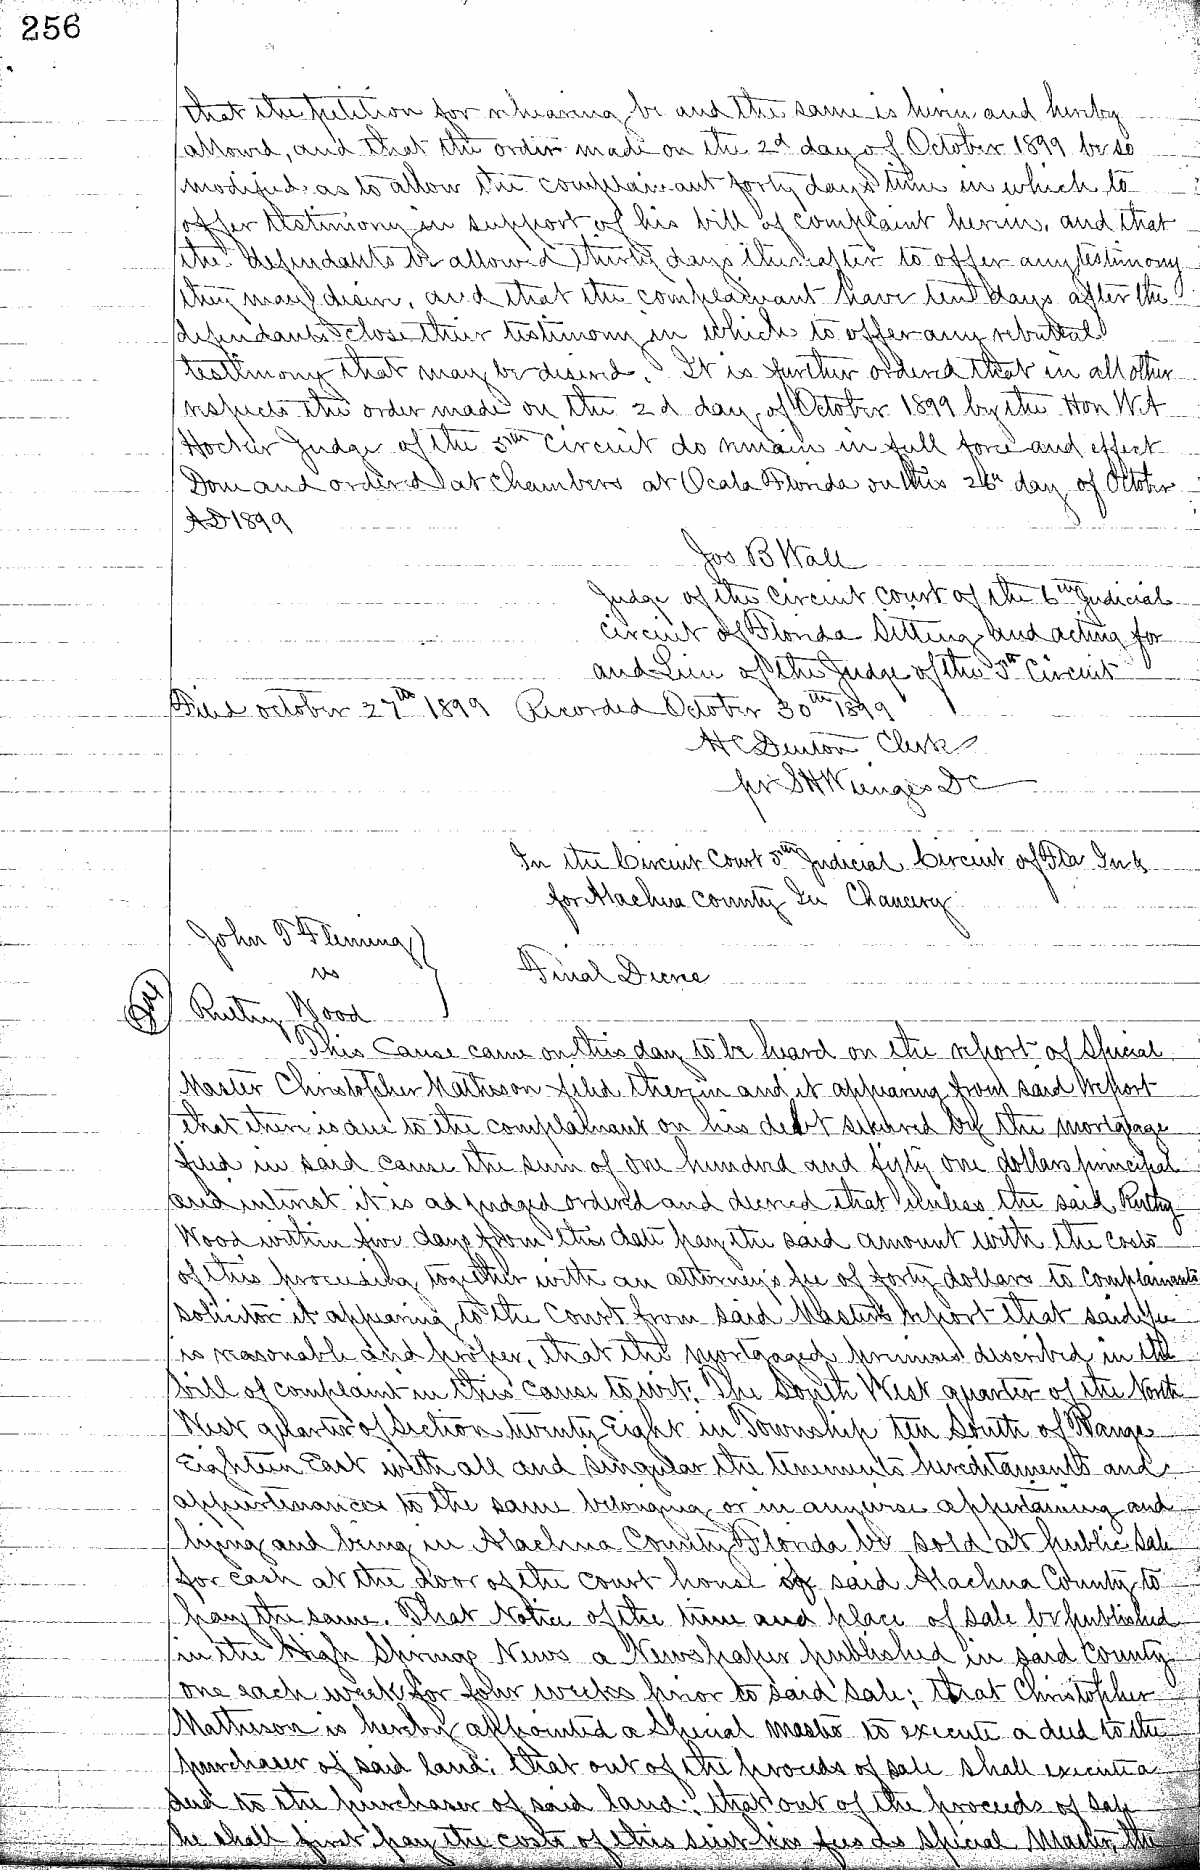 256
that the petition for rehearing be and the same is herein and hereby
allowed, and that the order made on the 2d day of October 1899 be so
modified as to allow the complainant forty days time in which to
offer testimony in support of his bill of complaint herein, and that
the defendants be allowed thirty days thereafter to offer any testimony
they may desire, and that the complainant have ten days after the
defendants close their testimony in which to offer any rebuttal
testimony that may be desired. It is further ordered that in all other
respects the order made on the 2d day of October 1899 by the Hon W A
Hocker Judge of the 5th Circuit do remain in full force and effect
Done and ordered at Chambers at Ocala Florida on this 26th day of October
AD 1899
Jos B Wall
Judge of the Circuit Court of the 6th Judicial
circuit of Florida Sitting and acting for
and Lieu of the Judge of the 5th Circuit
Filed October 27th 1899 Recorded October 30th 1899
H C Denton Clerk
pr S H Wienges DC
In the Circuit Court 5th Judicial Circuit of Fla In &
for Alachua County In Chancery
John T Fleming
vs Final Decree
Ruthy Wood
This Cause came on this day to be heard on the report of Special
Master Christopher Matheson filed therein and it appearing from said report
that there is due to the complainant on his debt secured by the mortgage
filed in said cause the sum of one hundred and fifty one dollars principal
and interest it is adjudged ordered and decreed that unless the said Ruthy
Wood within five days from this date pay the said amount with the costs
of this proceeding together with an attorney's fee of forty dollars to complainants
solicitor it appearing to the Court from said Masters report that said fee
is reasonable and proper, that the mortgaged premises described in the
bill of complaint in this cause to wit: The South West quarter of the North
West quarter of Section twenty Eight in Township ten South of Range
Eighteen East with all and singular the tenements hereditaments and
appurtenances to the same belonging or in anywise appertaining and
lying and being in Alachua County Florida be sold at public sale
for cash at the door of the court house of said Alachua County to
pay the same. That Notice of the time and place of sale be published
in the High Springs News a Newspaper published in said County
one each week for four weeks prior to said sale; that Christopher
Matheson is hereby appointed a Special master to execute a deed to the
purchaser of said land; that out of the proceeds of sale shall execute a
deed to the purchaser of said land; that out of the proceeds of sale
he shall first pay the costs of this suit his fees as Special Master, the